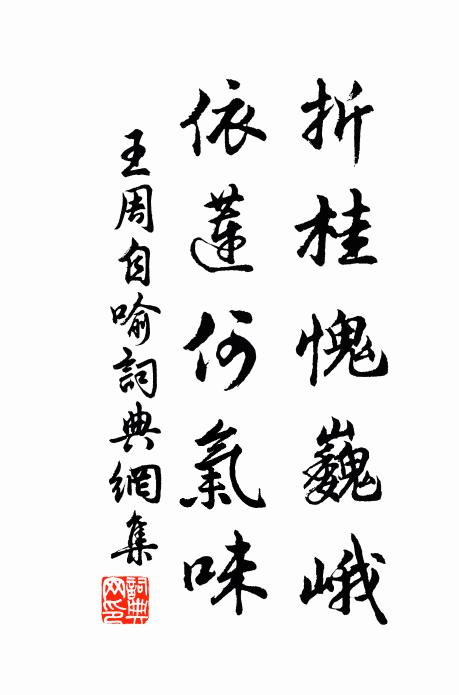 折桂愧巍峨
依蓮何氣味
王周自喻詞典網集
詞典網印